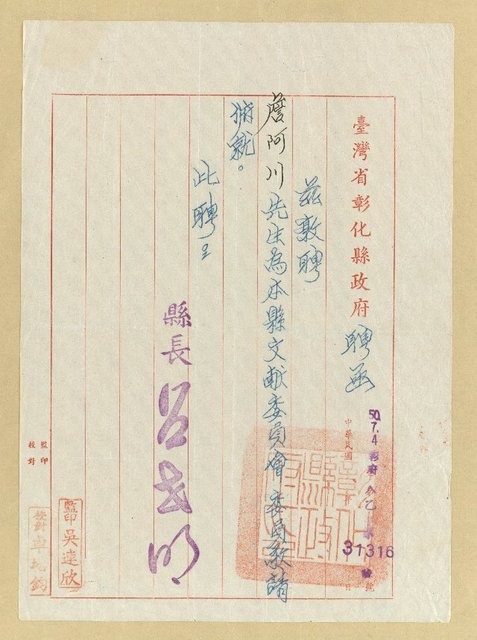 臺灣省彰化縣政府聘函
中華民國
50.7.4
31316
號
日
茲敦聘
詹阿川先生為本縣文献委員會委員敬請
俯就。
此聘
縣長呂世明
監印
校對
監印吳達欣
校對